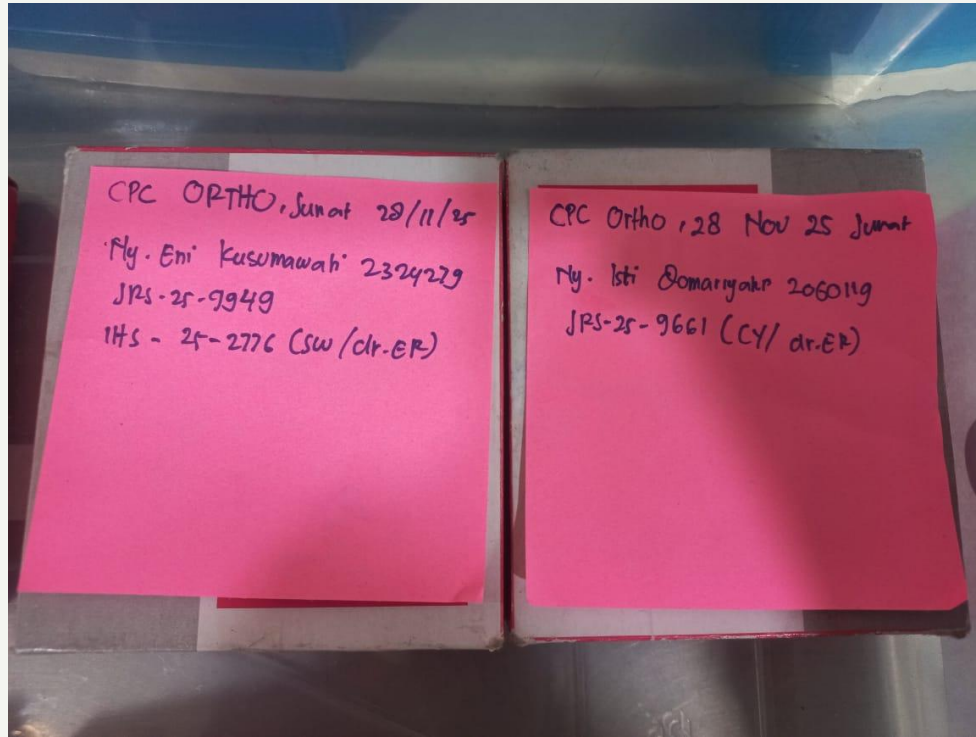 CPC ORTHO, Jumat 28/11/25
Ny. Eni Kusumawati 2324279
JRS-25-9949
IHS - 25-2776 (SW/dr.ER)
CPC Ortho, 28 Nov 25 Jumat
Ny. Isti Qomariyah 2060119
JRS-25-9661 (CY/ dr.ER)